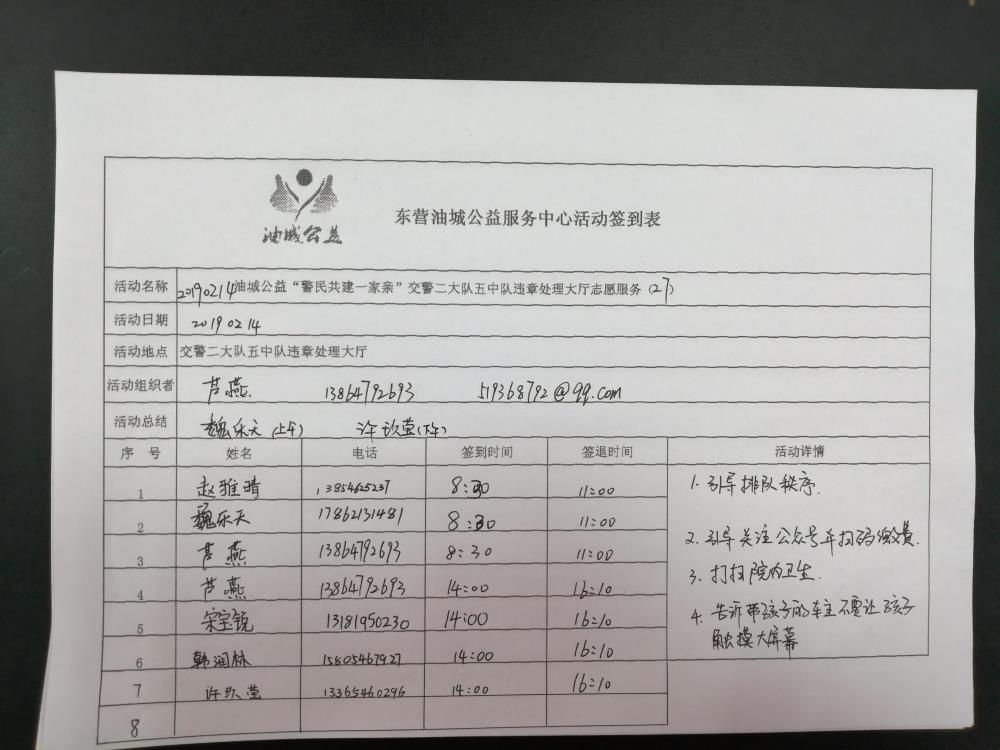 油城公益
东营油城公益服务中心活动签到表
活动名称 20190214油城公益“警民共建一家亲”交警二大队五中队违章处理大厅志愿服务(27)
活动日期 20190214
活动地点 交警二大队五中队违章处理大厅
活动组织者 芦燕 13864792693 519368792@qq.com
活动总结 魏乐天(上午) 许玖莹(下午)
序号 姓名 电话 签到时间 签退时间 活动详情
1 赵雅晴 13854625237 8:30 11:00 1. 引导排队秩序.
2 魏乐天 17862131481 8:30 11:00 2. 引导关注公众号并扫码缴费.
3 芦燕 13864792693 8:30 11:00 3. 打扫院内卫生.
4 芦燕 13864792693 14:00 16:10 4. 告诉带孩子的车主不要让孩子
5 宋宝锐 13181950230 14:00 16:10 触摸大屏幕
6 韩润林 15805467927 14:00 16:10
7 许玖莹 13365460296 14:00 16:10
8